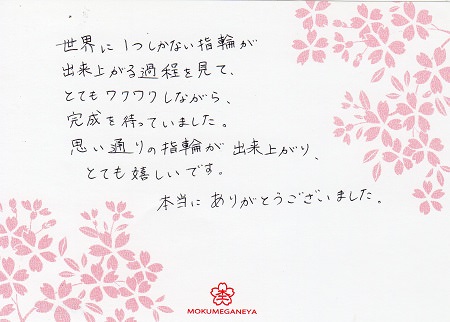 世界に1つしかない指輪が
出来上がる過程を見て、
とてもワクワクしながら、
完成を待っていました。
思い通りの指輪が出来上がり、
とても嬉しいです。
本当にありがとうございました。
MOKUMEGANEYA